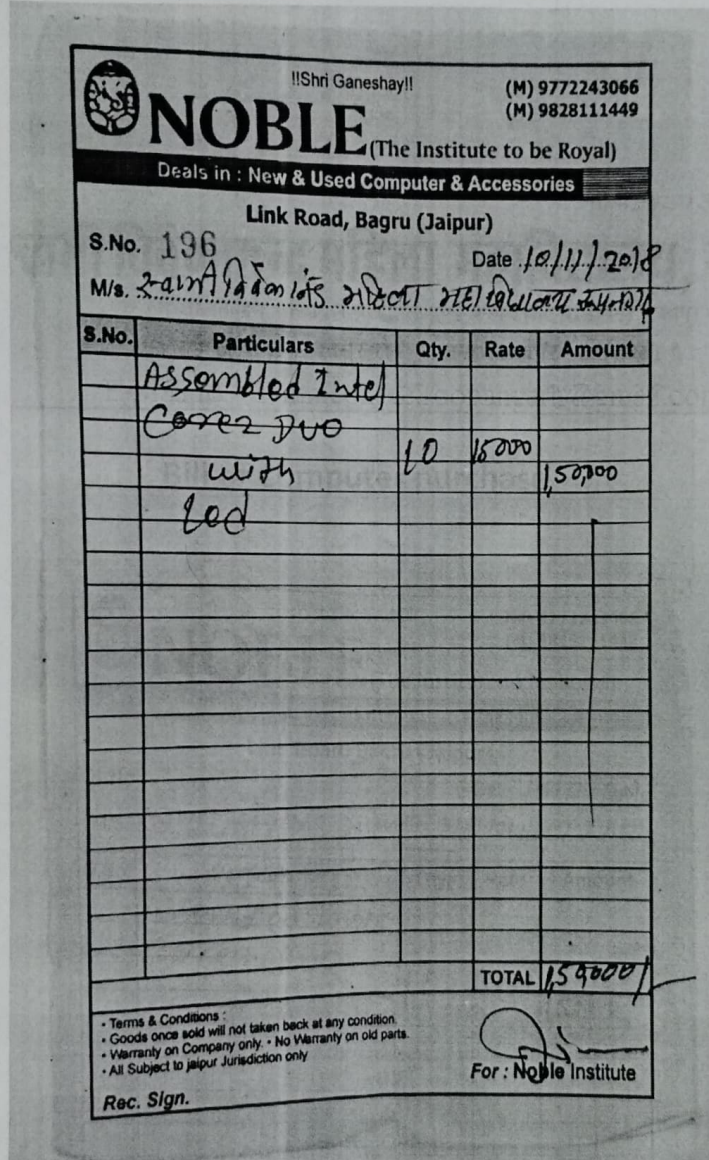 !!Shri Ganeshay!!
(M) 9772243066
(M) 9828111449
NOBLE (The Institute to be Royal)
Deals in : New & Used Computer & Accessories
Link Road, Bagru (Jaipur)
S.No. 196
Date 10/11/2018
M/s. स्वामी विवेकानंद महिला महाविद्यालय
S.No. Particulars Qty. Rate Amount
Assembled Intel
Core2 Duo
10 15000
with 1,50,000
Led
TOTAL 1,50,000/
• Terms & Conditions :
• Goods once sold will not taken back at any condition.
• Warranty on Company only. • No Warranty on old parts.
• All Subject to jaipur Jurisdiction only
For : Noble Institute
Rec. Sign.